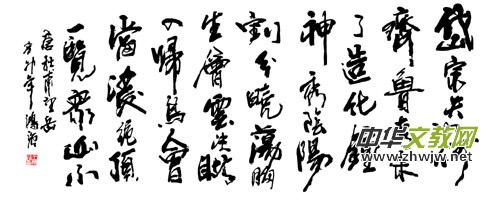 岱宗夫如何
齊魯青未
了造化鍾
神秀陰陽
割分曉蕩胸
生層雲決眥
入歸鳥會
當凌絕頂
一覽眾山小
唐杜甫望岳
辛卯年
中华文教网
www.zhwjw.net